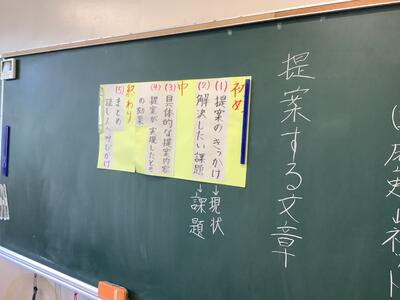 提案する文章
初め
(1)提案のきっかけ→現状
(2)解決したい課題→課題
中
(3)具体的な提案内容
(4)提案が実現したときの効果
終わり
(5)まとめ
読む人へ呼びかけ